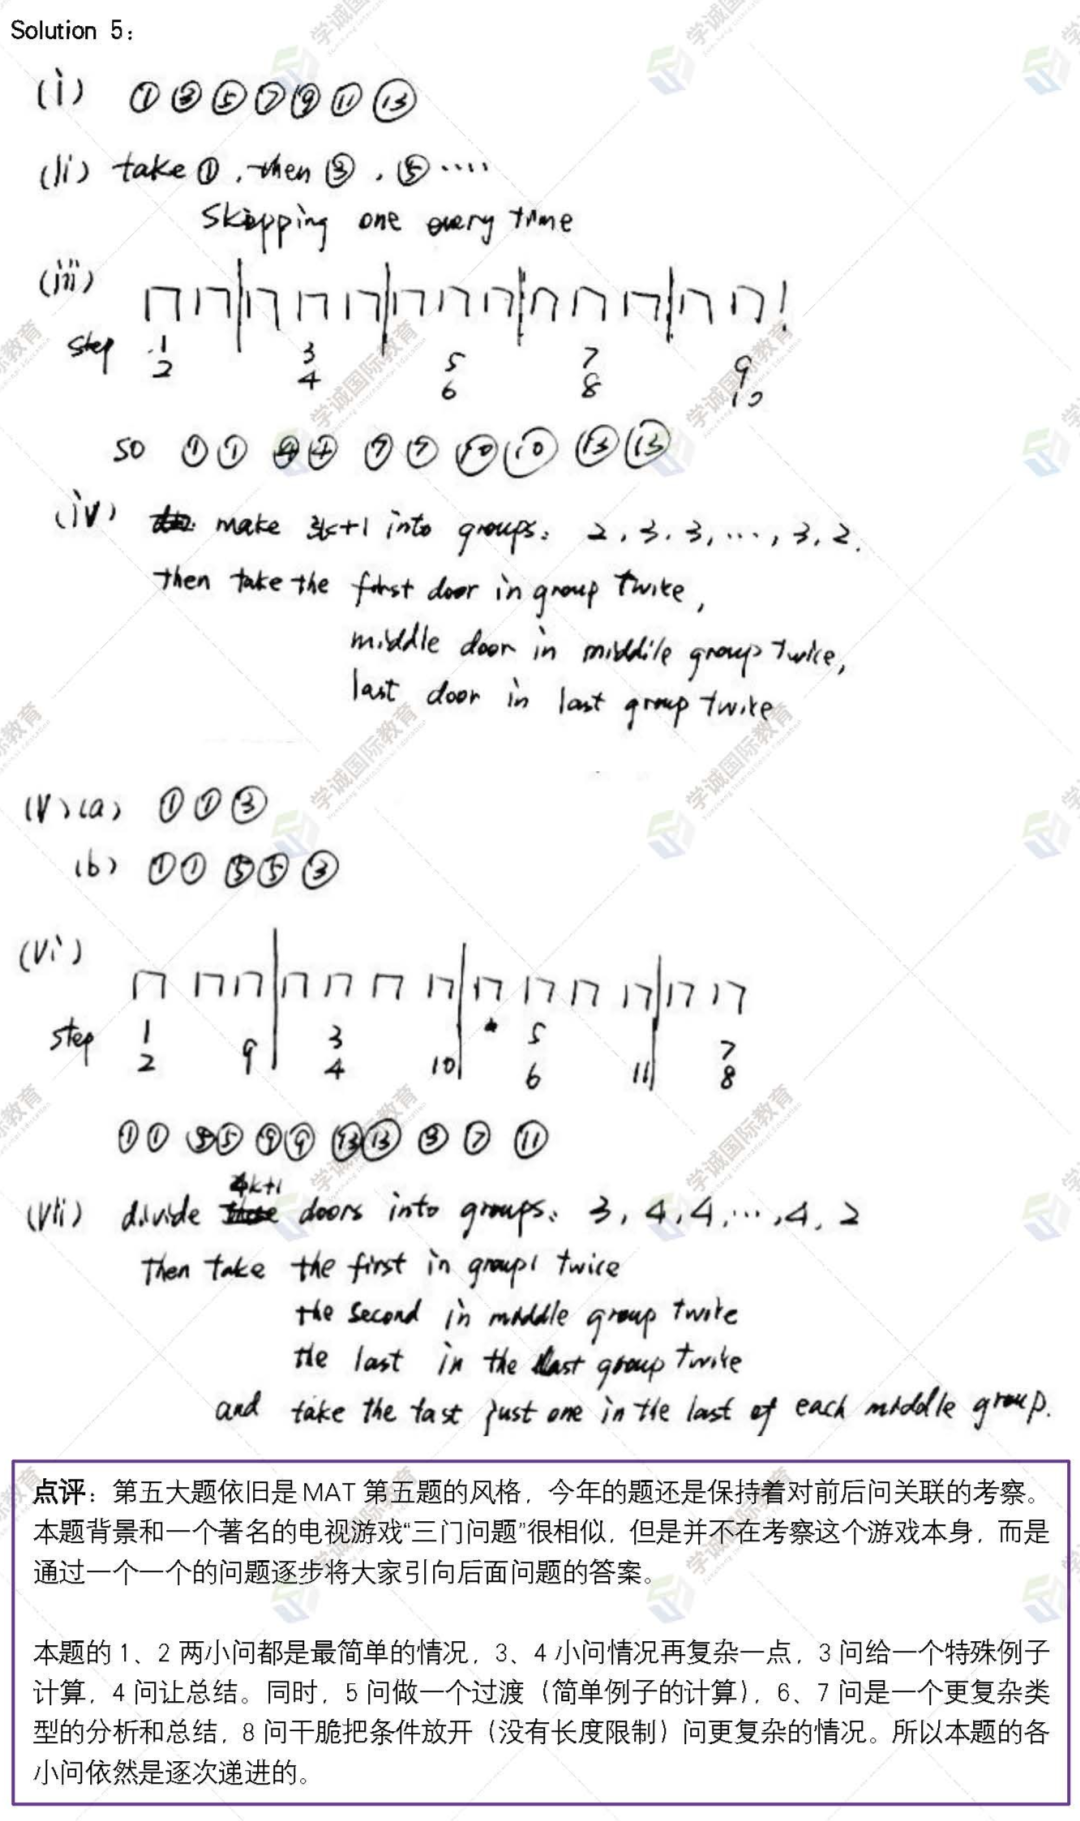 Solution 5:
(i) ① ③ ⑤ ⑦ ⑨ ⑪ ⑬
(ii) take ①, then ③, ⑤ ....
Skipping one every time
(iii)
step 1 3 5 7 9
2 4 6 8 10
so ① ① ④ ④ ⑦ ⑦ ⑩ ⑩ ⑬ ⑬
(iv) make 3k+1 into groups: 2, 3, 3, ..., 3, 2.
then take the first door in group twice,
middle door in middile group twice,
last door in last group twice
(v) (a) ① ① ③
(b) ① ① ⑤ ⑤ ③
(vi)
step 1 3 5 7
2 9 4 10 6 11 8
① ① ⑤ ⑤ ⑨ ⑨ ⑬ ⑬ ③ ⑦ ⑪
(vii) divide 4k+1 doors into groups: 3, 4, 4, ..., 4, 2
Then take the first in group1 twice
the second in middle group twice
the last in the last group twice
and take the just one in the last of each middle group.
点评：第五大题依旧是 MAT 第五题的风格，今年的题还是保持着对前后问关联的考察。
本题背景和一个著名的电视游戏“三门问题”很相似，但是并不在考察这个游戏本身，而是
通过一个一个的问题逐步将大家引向后面问题的答案。
本题的 1、2 两小问都是最简单的情况，3、4 小问情况再复杂一点，3 问给一个特殊例子
计算，4 问让总结。同时，5 问做一个过渡（简单例子的计算），6、7 问是一个更复杂类
型的分析和总结，8 问干脆把条件放开（没有长度限制）问更复杂的情况。所以本题的各
小问依然是逐次递进的。
学诚国际教育